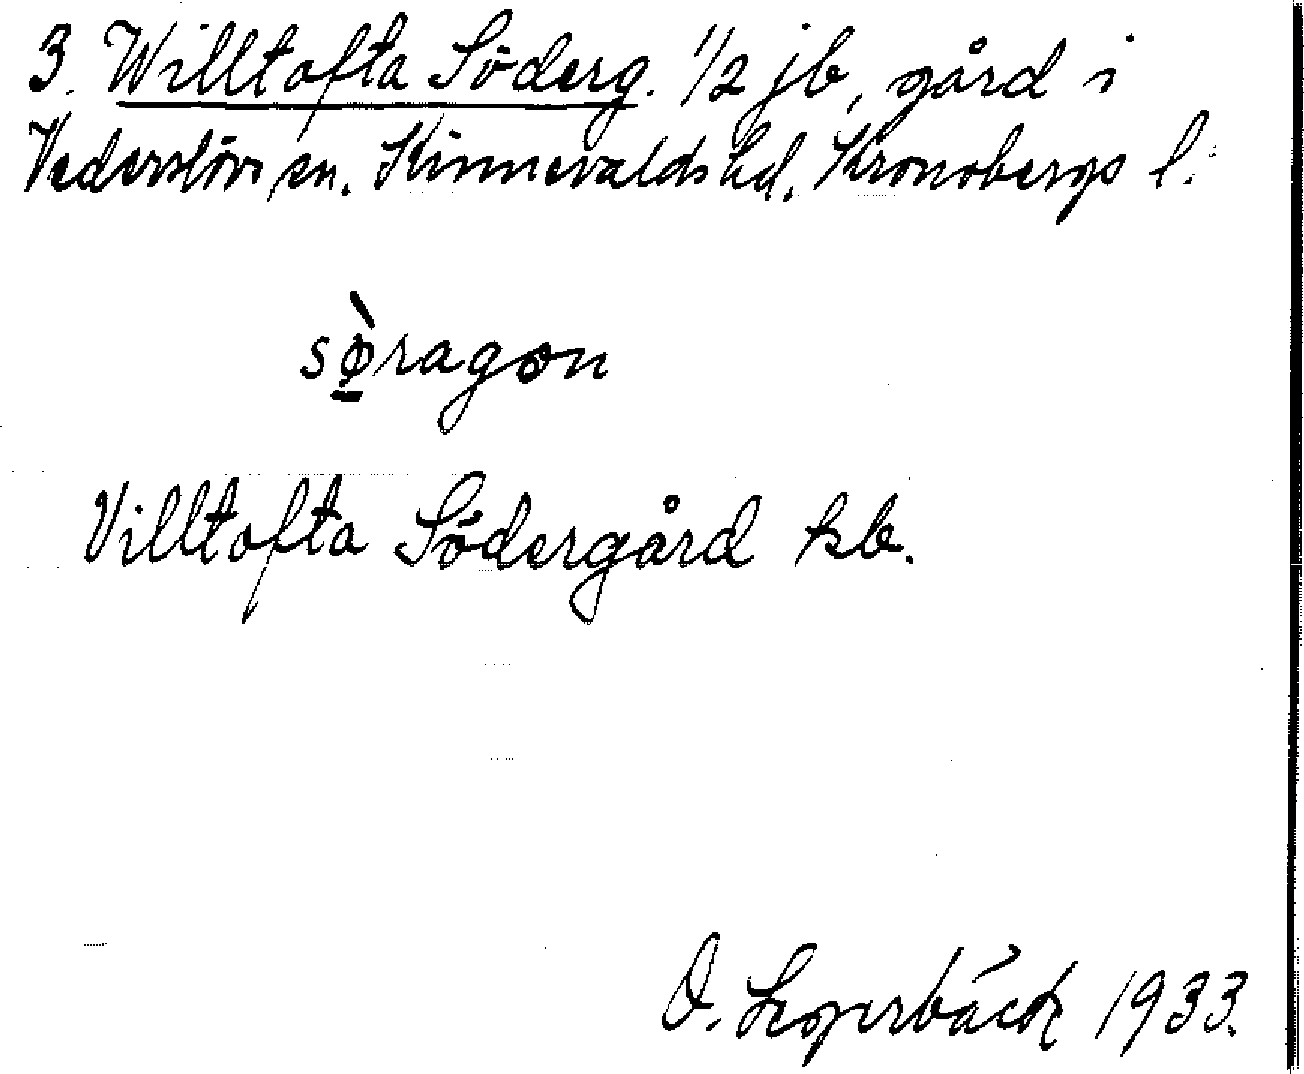 3. Willtofta Söderg. 1/2 jb, gård i
Vederslövs sn. Kinnevalds hd. Kronobergs l.
sø̱̀ragon
Villtofta Södergård kb.
O. 1933.